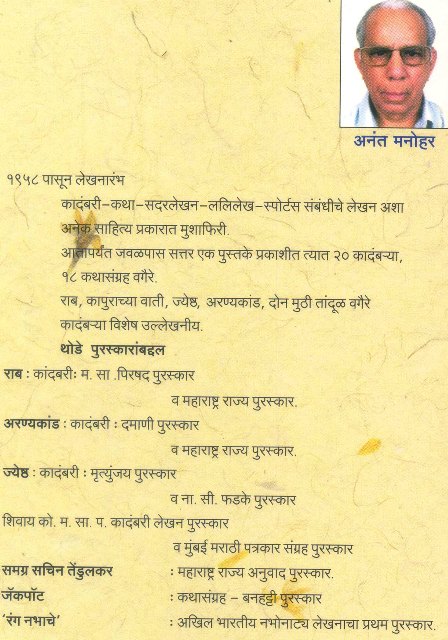 अनंत मनोहर
१९५८ पासून लेखनारंभ
कादंबरी–कथा–सदरलेखन–ललिलेख–स्पोर्टस संबंधीचे लेखन अशा
अनेक साहित्य प्रकारात मुशाफिरी.
आतापर्यंत जवळपास सत्तर एक पुस्तके प्रकाशीत त्यात २० कादंबऱ्या,
१८ कथासंग्रह वगैरे.
राब, कापुराच्या वाती, ज्येष्ठ, अरण्यकांड, दोन मुठी तांदूळ वगैरे
कादंबऱ्या विशेष उल्लेखनीय.
थोडे पुरस्कारांबद्दल
राब : कांदबरीः म. सा .पिरषद पुरस्कार
व महाराष्ट्र राज्य पुरस्कार.
अरण्यकांड : कादंबरी : दमाणी पुरस्कार
व महाराष्ट्र राज्य पुरस्कार.
ज्येष्ठ : कादंबरी : मृत्युंजय पुरस्कार
व ना. सी. फडके पुरस्कार
शिवाय को. म. सा. प. कादंबरी लेखन पुरस्कार
व मुंबई मराठी पत्रकार संग्रह पुरस्कार
समग्र सचिन तेंडुलकर : महाराष्ट्र राज्य अनुवाद पुरस्कार.
जॅकपॉट : कथासंग्रह – बनहट्टी पुरस्कार
'रंग नभाचे' : अखिल भारतीय नभोनाट्य लेखनाचा प्रथम पुरस्कार.